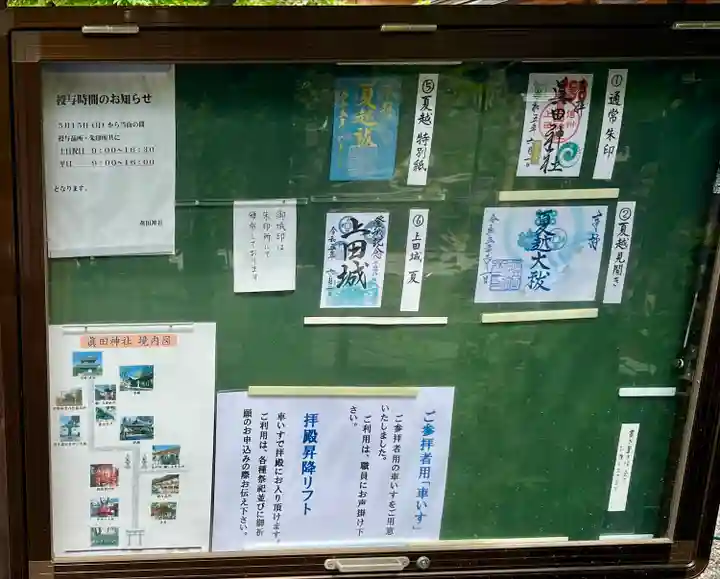 授与時間のお知らせ
5月15日(日)から当面の間
授与品所・朱印所共に
土日祝日 9:00~16:30
平日 9:00~16:00
となります。
眞田神社
⑤夏越 特別紙
夏越祓
①通常朱印
眞田神社
御城印は
朱印所にて
頒布しております
⑥上田城 夏
登城記念
上田城
②夏越見開き
奉拝
夏越大祓
眞田神社 境内図
ご参拝者用「車いす」
ご参拝者用の車いすをご用意
いたしました。
ご利用は、職員にお声掛け下
さい。
拝殿昇降リフト
車いすで拝殿にお入り頂けます。
ご利用は、各種祭祀並びに御祈
願のお申込みの際お伝え下さい。